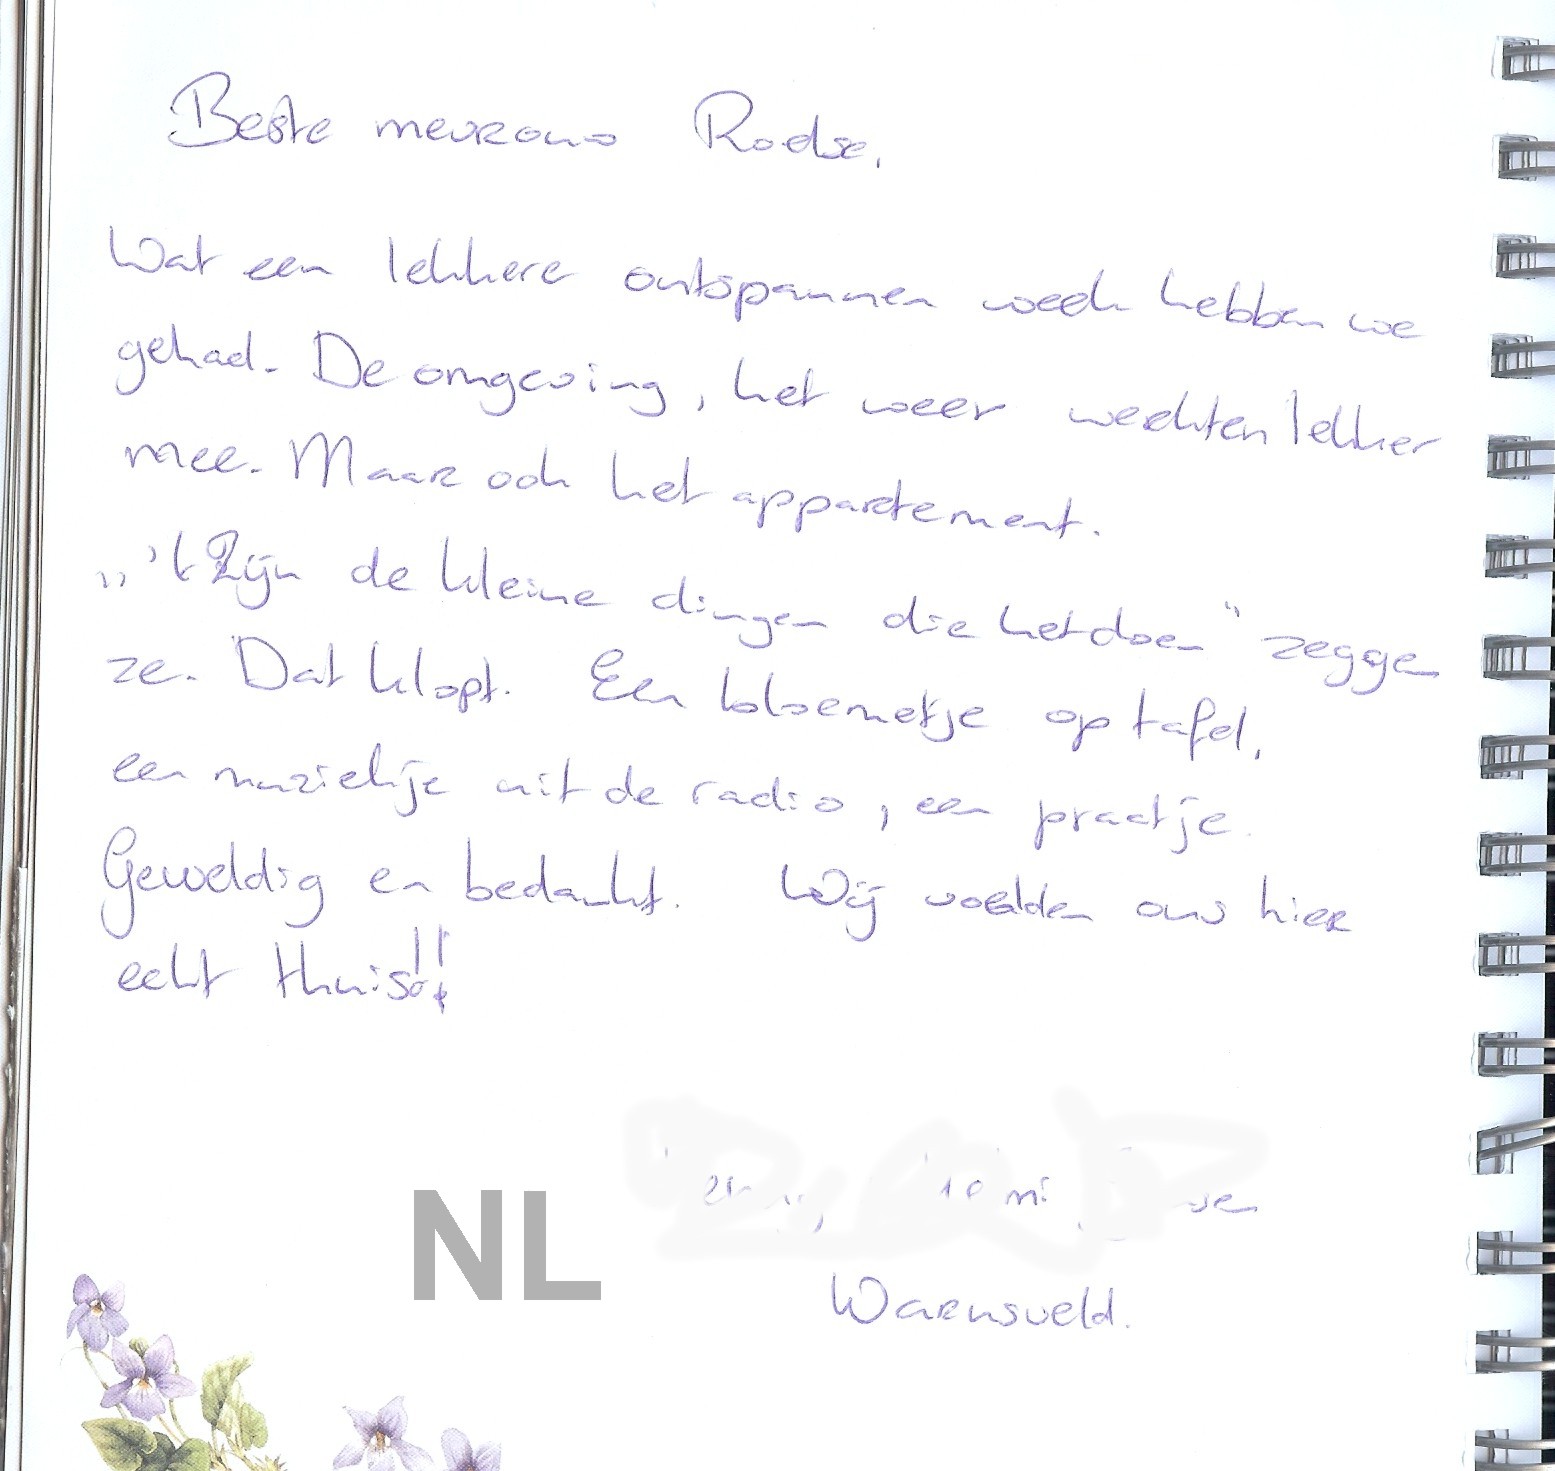 Beste mevrouw Rodse,
Wat een lekkere ontspannen week hebben we
gehad. De omgeving, het weer werkten lekker
mee. Maar ook het appartement.
„'t Zijn de kleine dingen die het doen" zeggen
ze. Dat klopt. Een bloemetje op tafel,
een muziekje uit de radio, een praatje.
Geweldig en bedankt. Wij voelden ons hier
echt thuis!!
NL
Warnsveld.